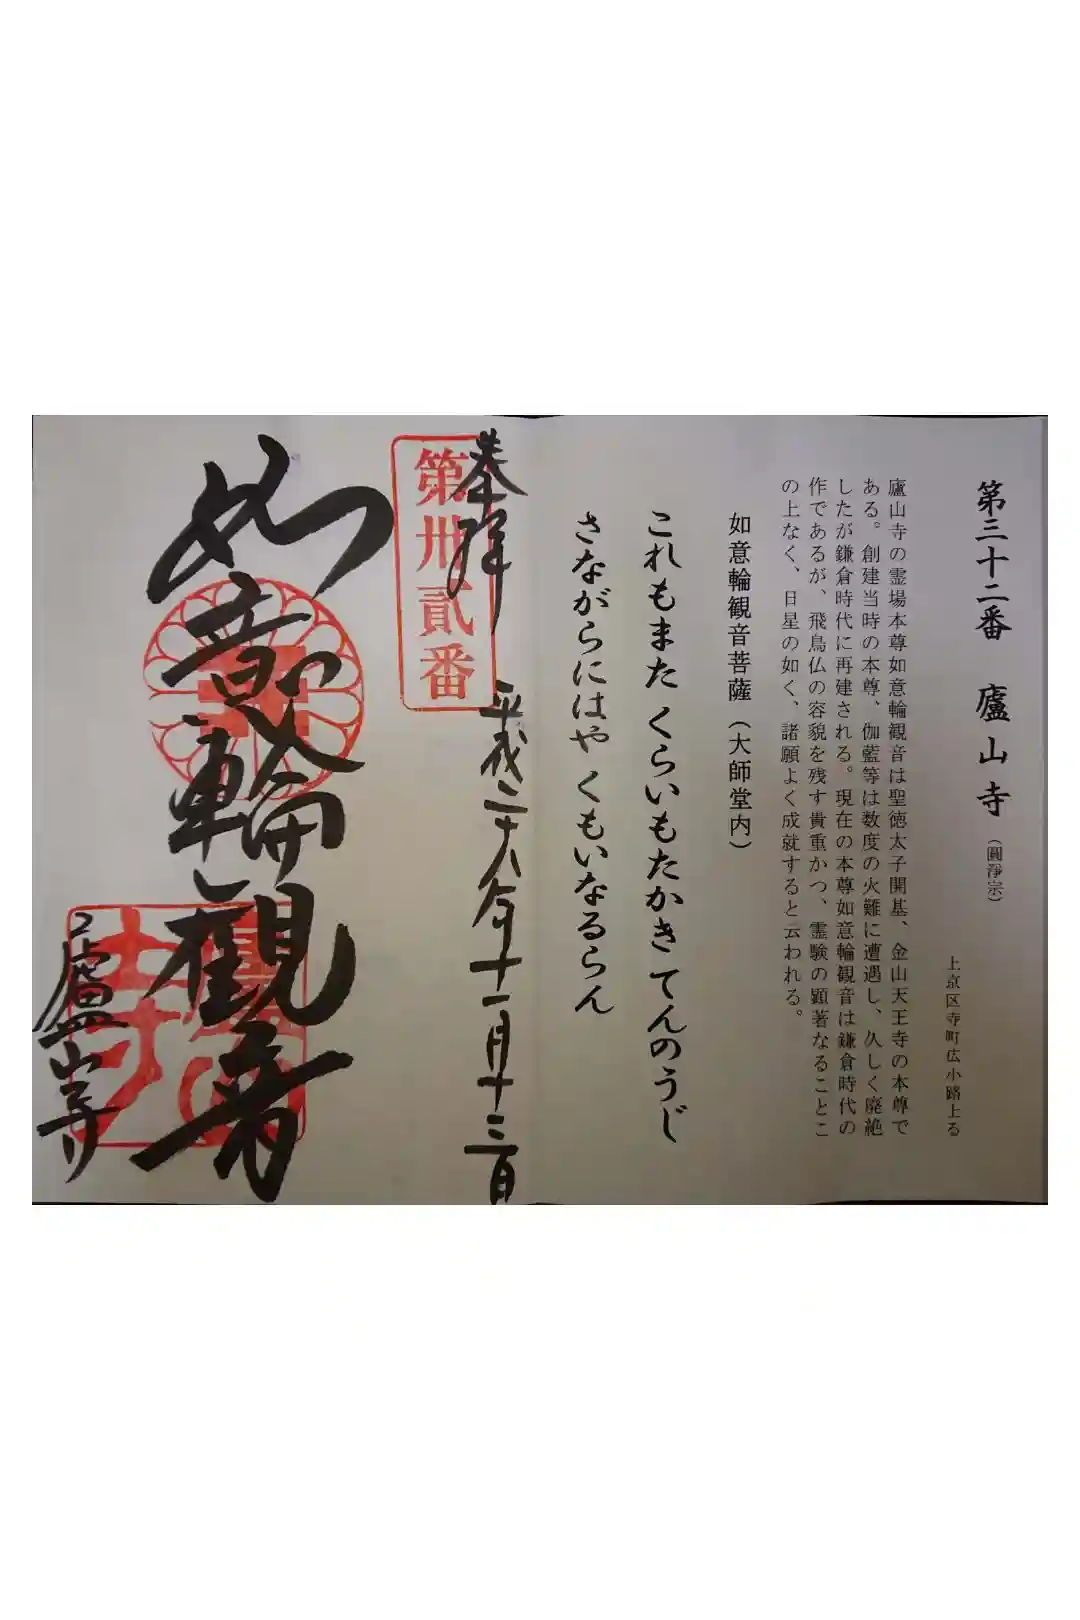 第三十二番 廬山寺(圓淨宗)
上京区寺町広小路上る
廬山寺の霊場本尊如意輪観音は聖徳太子開基、金山天王寺の本尊で
ある。創建当時の本尊、伽藍等は数度の火難に遭遇し、久しく廃絶
したが鎌倉時代に再建される。現在の本尊如意輪観音は鎌倉時代の
作であるが、飛鳥仏の容貌を残す貴重かつ、霊験の顕著なることこ
の上なく、日星の如く、諸願よく成就すると云われる。
如意輪観音菩薩(大師堂内)
これもまた くらいもたかき てんのうじ
さながらにはや くもいなるらん
奉拝 平成二十八年十一月十三日
第卅貳番
如意輪観音
廬山寺